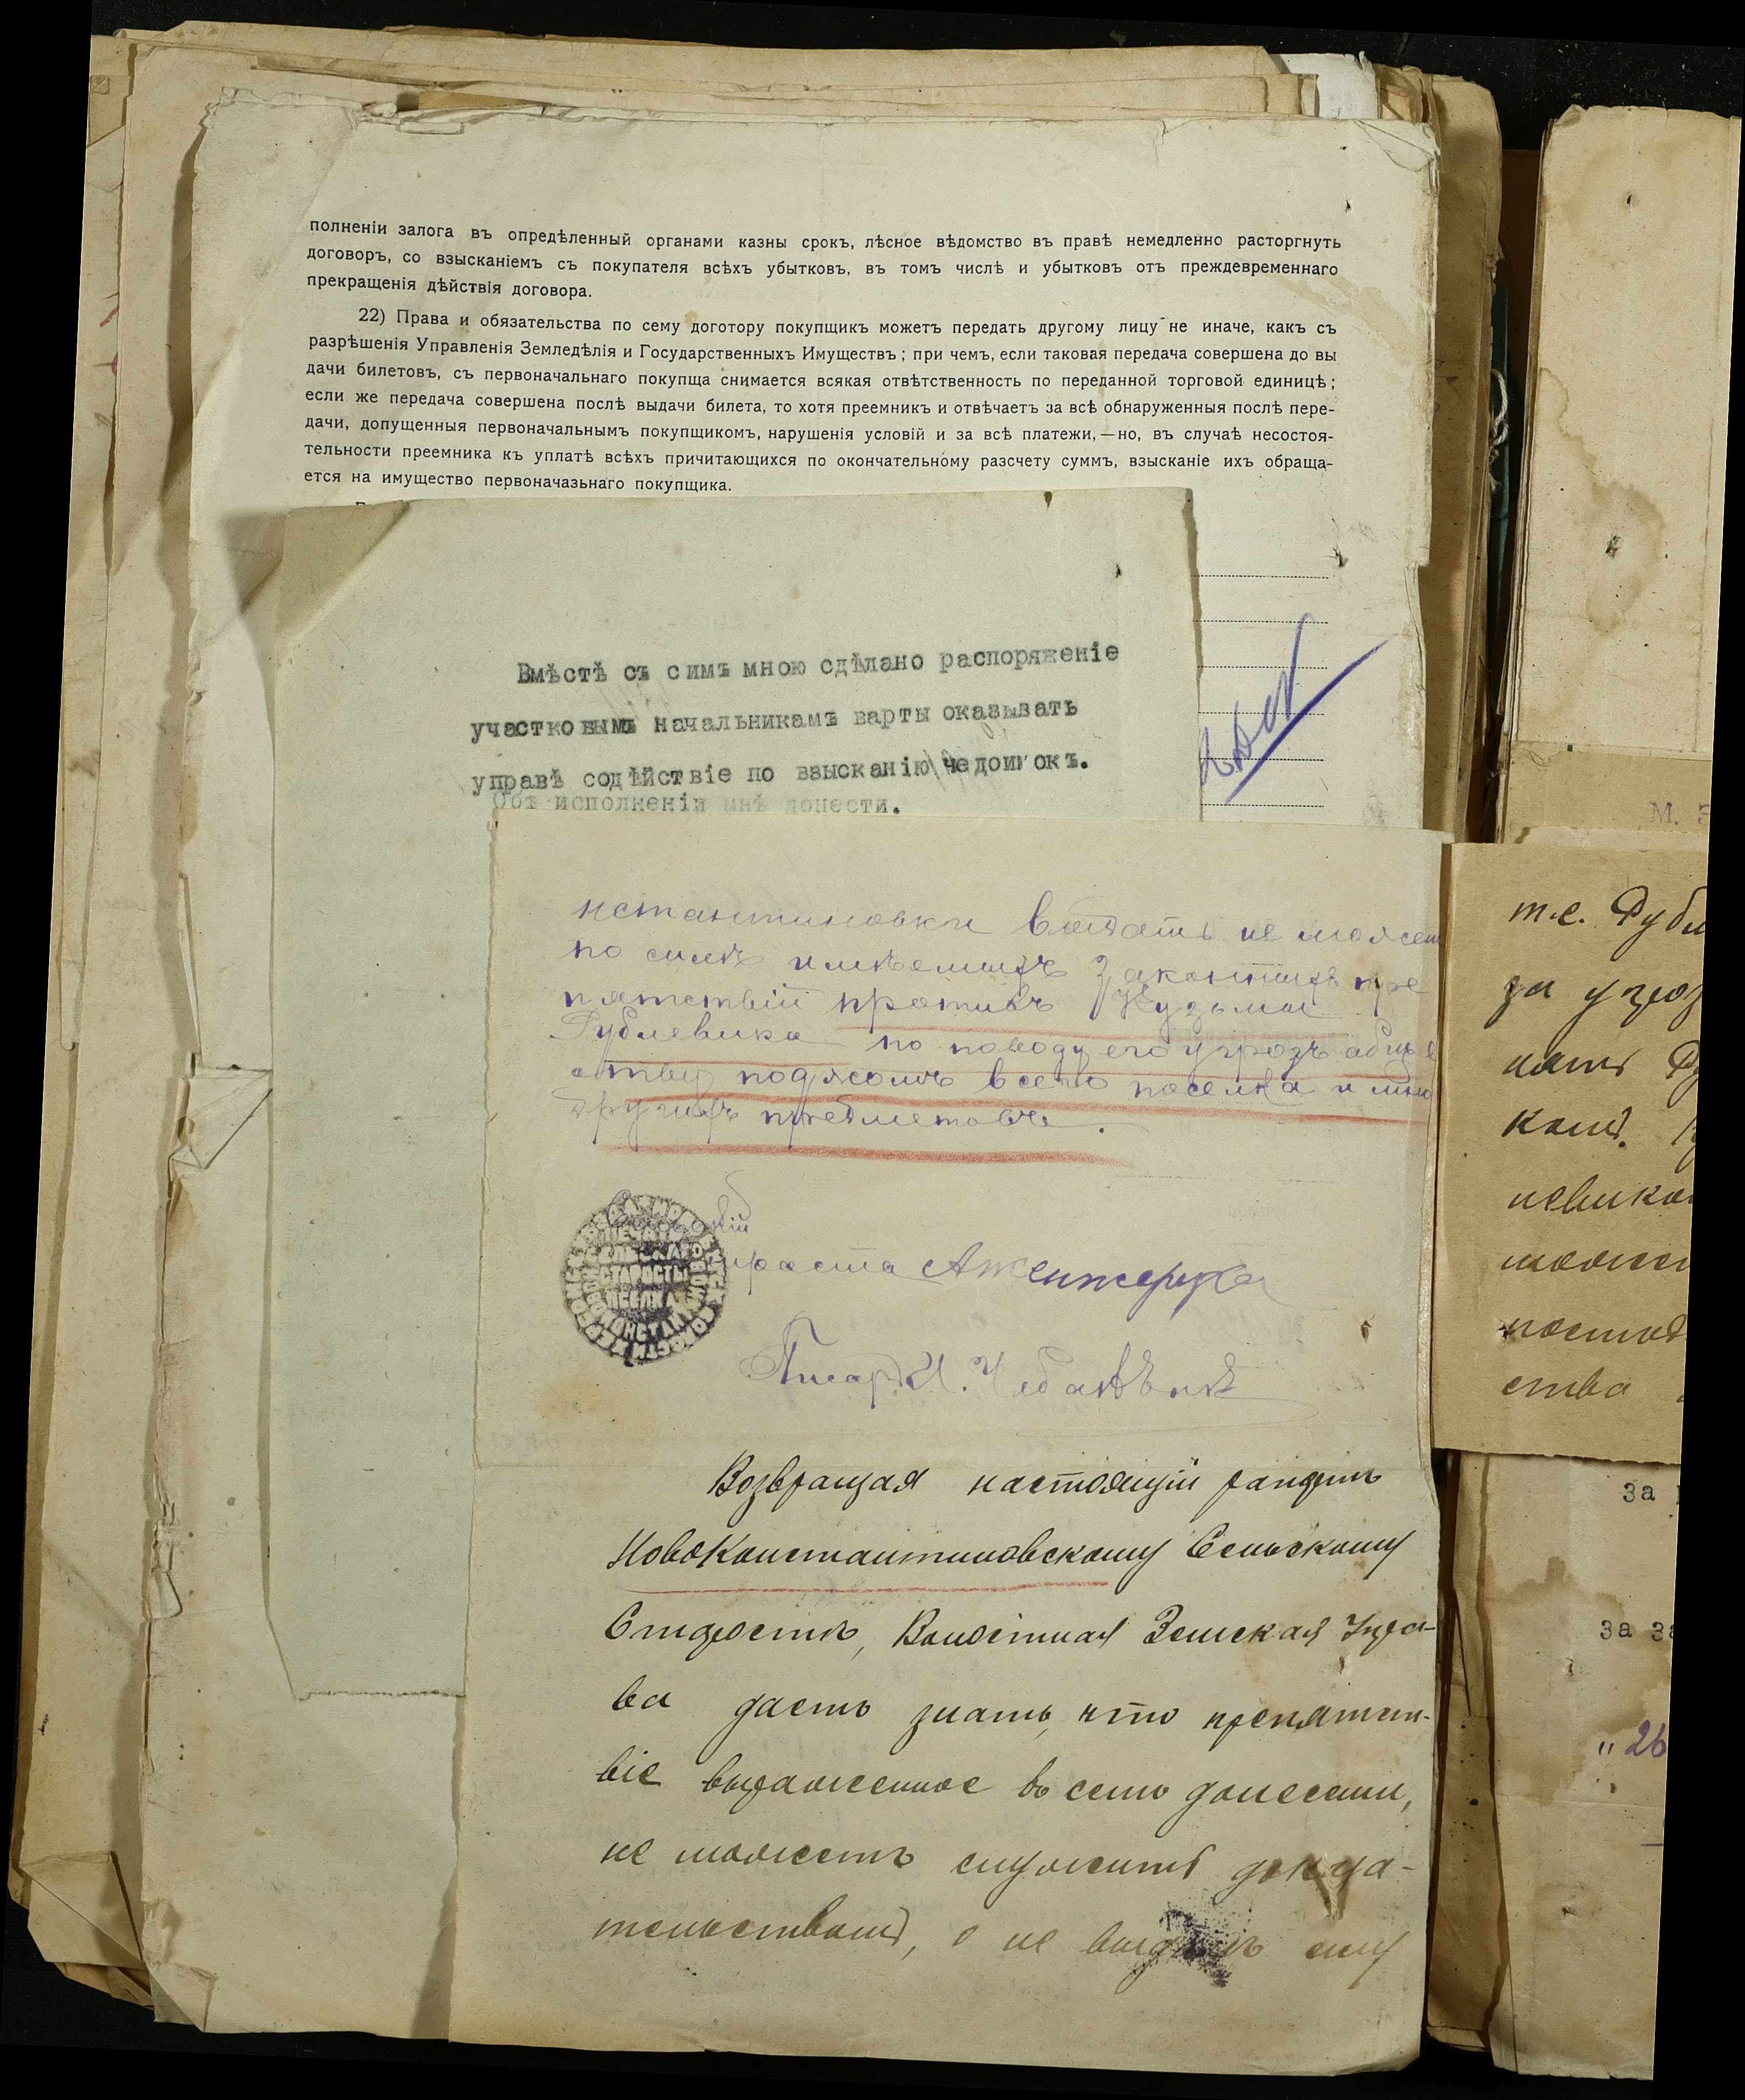 полненіи залога въ опредѣленный органами казны срокъ, лѣсное вѣдомство въ правѣ немедленно расторгнуть
договоръ, со взысканіемъ съ покупателя всѣхъ убытковъ, въ томъ числѣ и убытковъ отъ преждевременнаго
прекращенія дѣйствія договора.
22) Права и обязательства по сему договору покупщикъ можетъ передать другому лицу не иначе, какъ съ
разрѣшенія Управленія Земледѣлія и Государственныхъ Имуществъ; при чемъ, если таковая передача совершена до вы
дачи билетовъ, съ первоначальнаго покупща снимается всякая отвѣтственность по переданной торговой единицѣ;
если же передача совершена послѣ выдачи билета, то хотя преемникъ и отвѣчаетъ за всѣ обнаруженныя послѣ пере-
дачи, допущенныя первоначальнымъ покупщикомъ, нарушенія условій и за всѣ платежи,—но, въ случаѣ несостоя-
тельности преемника къ уплатѣ всѣхъ причитающихся по окончательному разсчету суммъ, взысканіе ихъ обраща-
ется на имущество первоначазьнаго покупщика.
Вмѣстѣ съ симъ мною сдѣлано распоряженіе
участковымъ начальникамъ варты оказывать
управѣ содѣйствіе по взысканію недоимокъ.
Объ исполненіи мнѣ донести.
нстантиновки выдать не может
по силѣ имѣемыхъ законныхъ пре
пятствій противъ Кузьмы
Рублевика по поводу его угрозъ общ
ству поджомъ всего поселка и
другихъ предметовъ.
Сельскій
староста
Писарь И.
СТАРОСТЫ
Возвращая настоящій рапортъ
НовоКонстантиновскому Сельскому
Старостѣ, Волостная Земская Упра-
ва даетъ знать, что препятст-
віе выраженное въ семъ донесеніи,
не можетъ служить доказа-
тельствомъ, о не выдачѣ ему
т.е. Рубл
за угроз
нать
комъ.
невика
может
постав
ства
М. З
За
За за
" 26